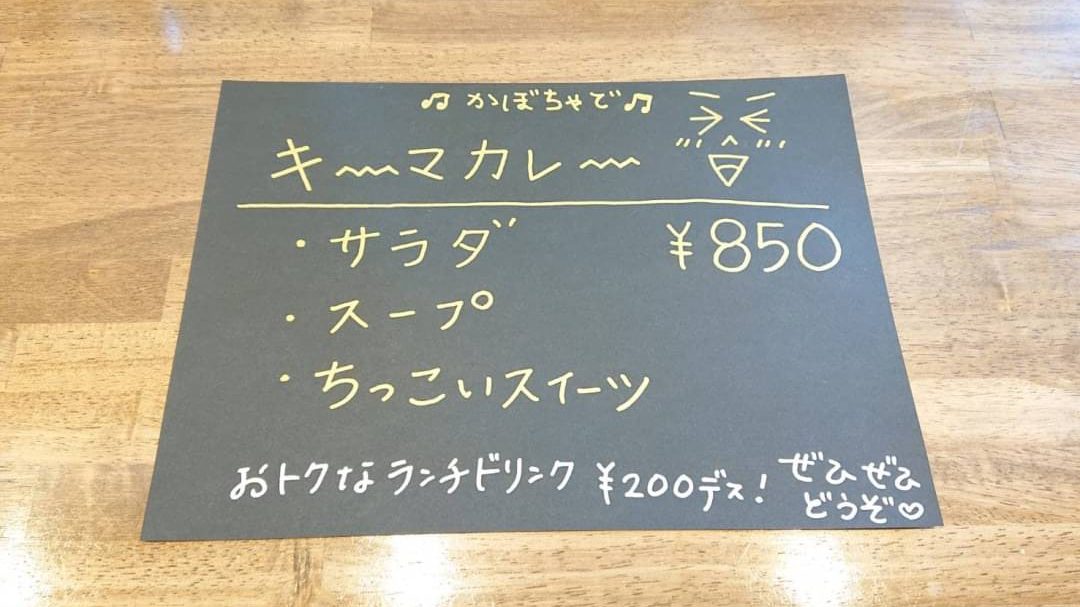 ♫ かぼちゃで ♫
キ〰マカレ〰
・サラダ ¥850
・スープ
・ちっこいスイーツ
おトクなランチドリンク ¥200デス! ぜひぜひ
どうぞ♡